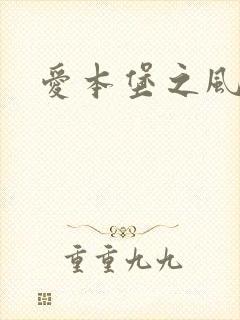 愛本堡之風
重重九九